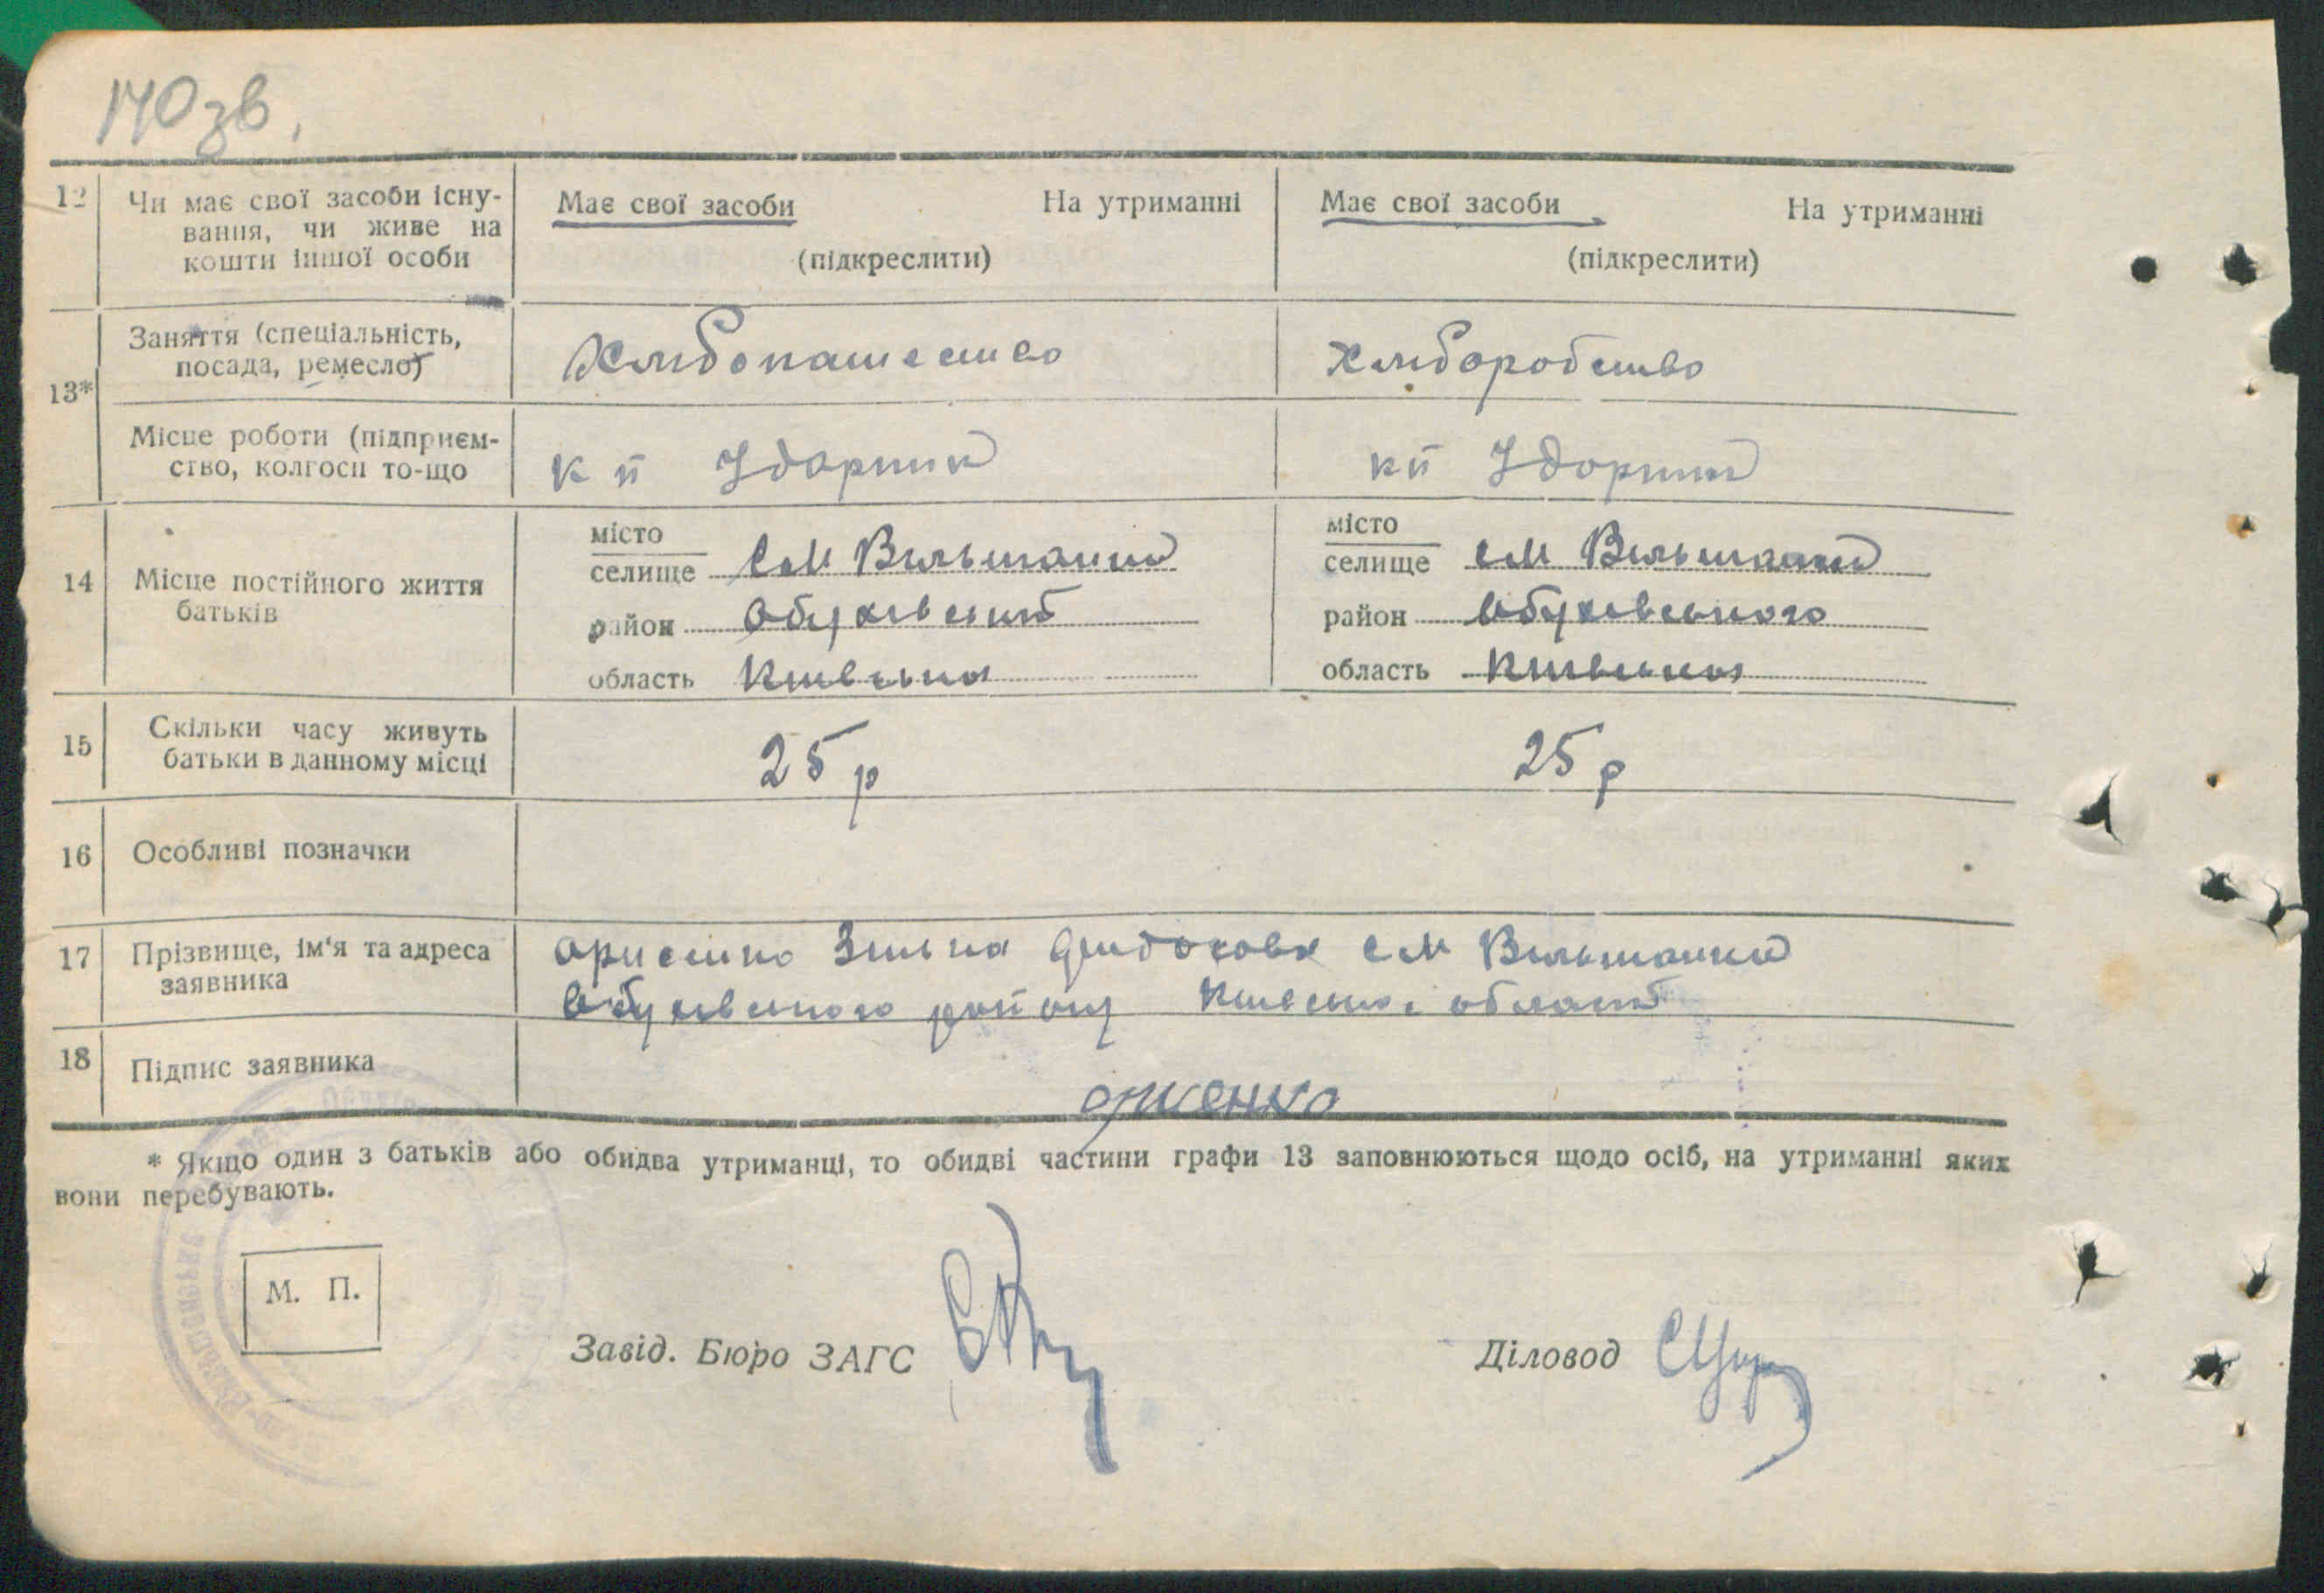 140 зв.
12 Чи має свої засоби існу-
вання, чи живе на
кошти іншої особи
Має свої засоби На утриманні
(підкреслити)
Має свої засоби На утриманні
(підкреслити)
13*
Заняття (спеціальність,
посада, ремесло)
Хлібопашество
Хліборобство
Місце роботи (підприєм-
ство, колгосп то-що
Ударник
Ударник
14 Місце постійного життя
батьків
місто
селище см Вільшанки
район Обухівський
область Київська
місто
селище см Вільшанки
район Обухівського
область Київська
15 Скільки часу живуть
батьки в данному місці
25 р
25 р
16 Особливі позначки
17 Прізвище, ім'я та адреса
заявника
см Вільшанки
Обухівського району Київської області
18 Підпис заявника
* Якщо один з батьків або обидва утриманці, то обидві частини графи 13 заповнюються щодо осіб, на утриманні яких
вони перебувають.
М. П.
Завід. Бюро ЗАГС
Діловод